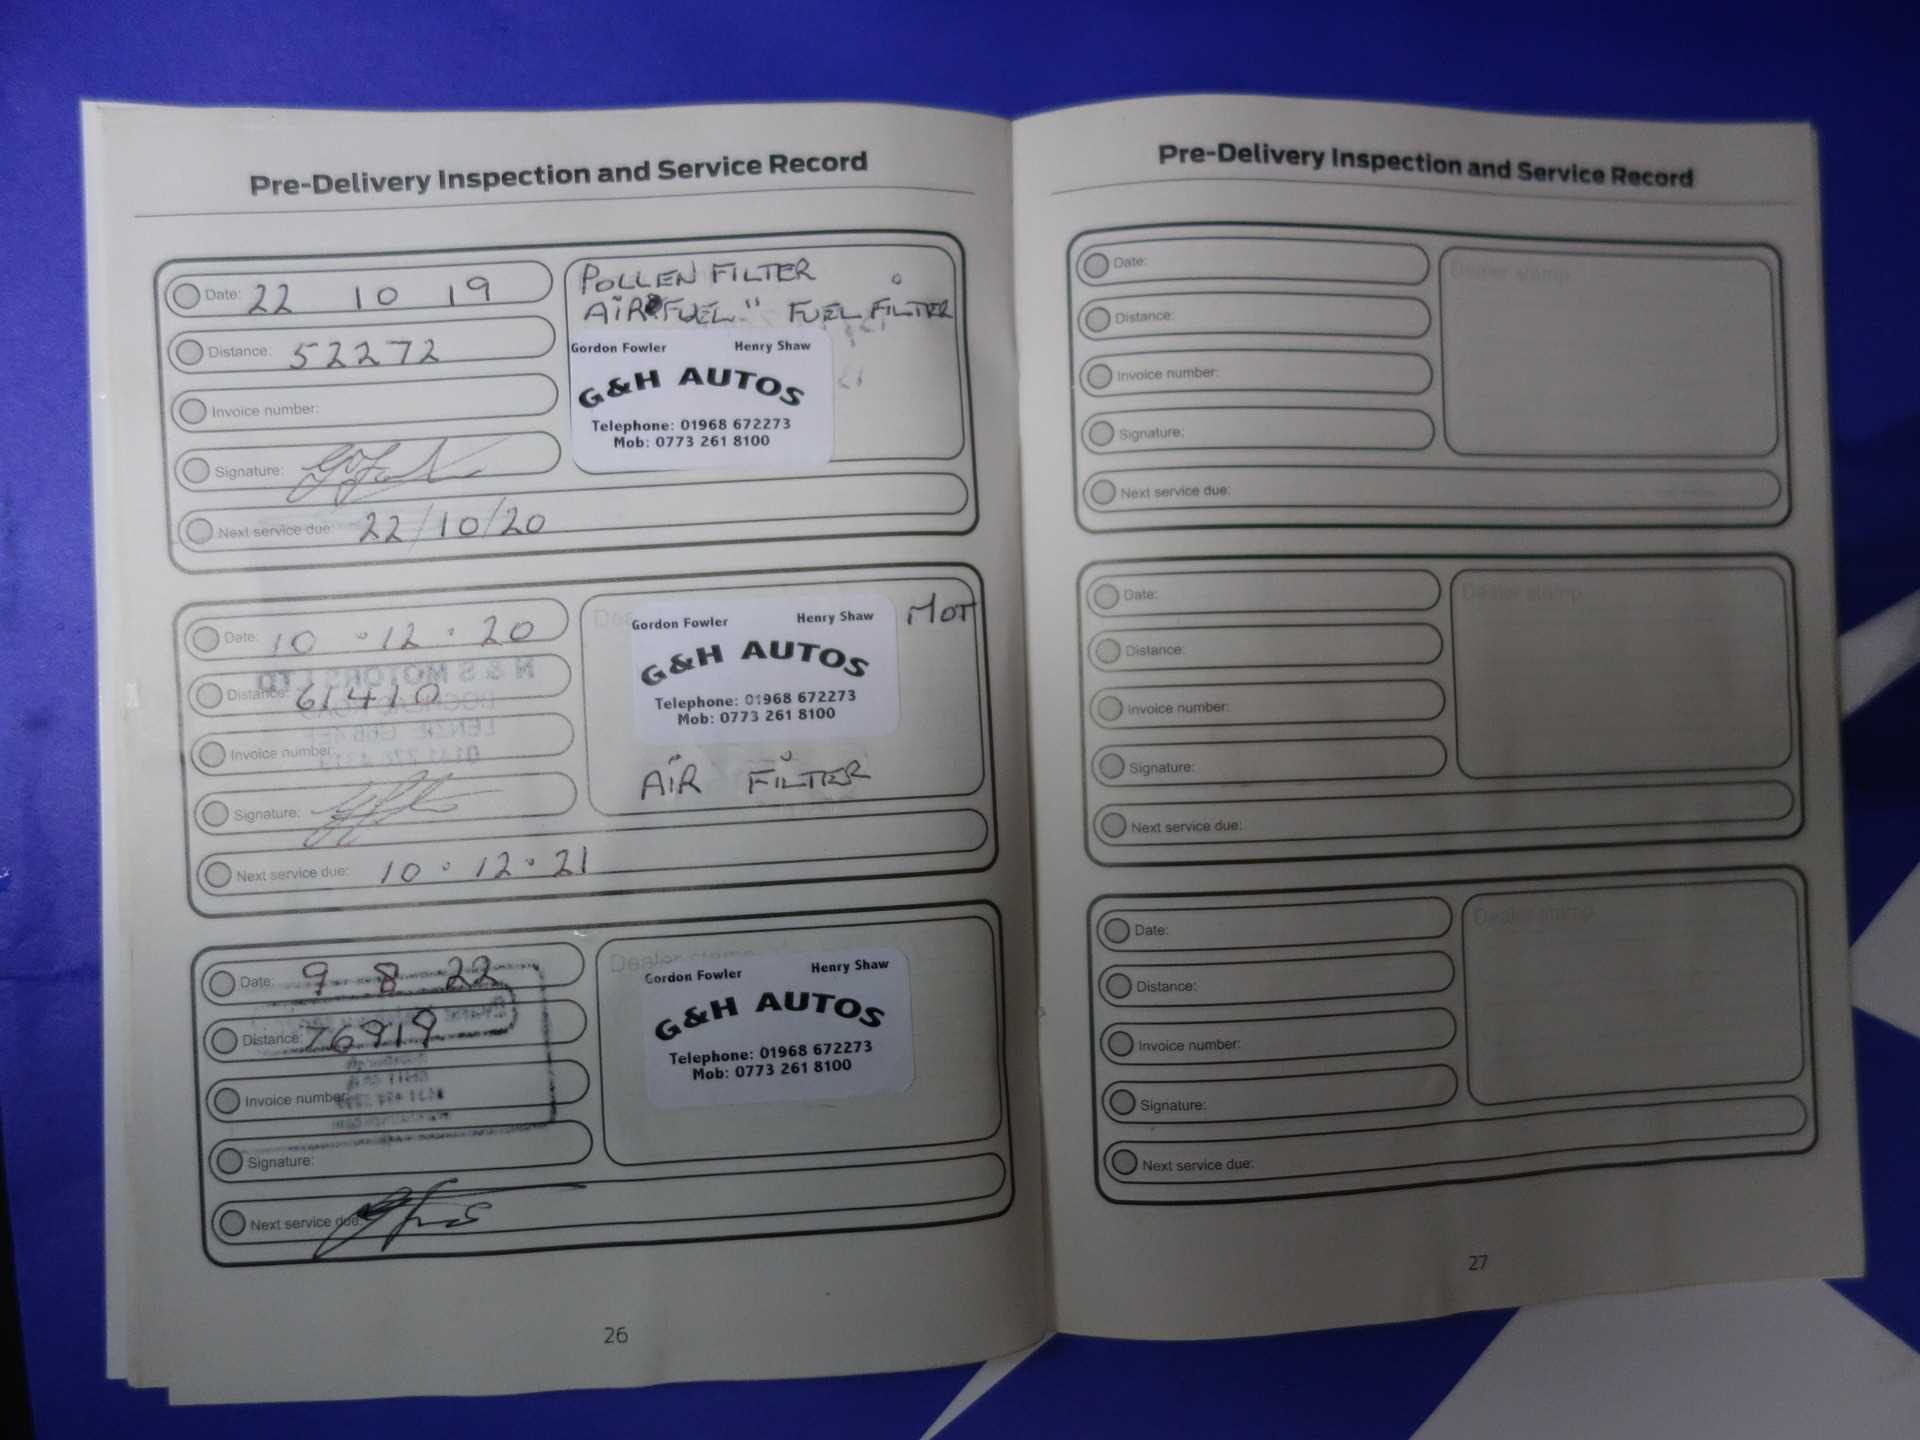 Pre-Delivery Inspection and Service Record
Date: 22 10 19
Distance: 52272
Invoice number:
Signature:
Next service due: 22/10/20
POLLEN FILTER
AIR FUEL " FUEL FILTER
Gordon Fowler Henry Shaw
G&H AUTOS
Telephone: 01968 672273
Mob: 0773 261 8100
Date: 10 . 12 . 20
Distance: 61410
Invoice number:
Signature:
Next service due: 10 . 12 . 21
MOT
Gordon Fowler Henry Shaw
G&H AUTOS
Telephone: 01968 672273
Mob: 0773 261 8100
AIR FILTER
N & S MOTORS LTD
Date: 9 8 22
Distance: 76919
Invoice number:
Signature:
Next service due:
Dealer stamp
Gordon Fowler Henry Shaw
G&H AUTOS
Telephone: 01968 672273
Mob: 0773 261 8100
26
Pre-Delivery Inspection and Service Record
Date:
Distance:
Invoice number:
Signature:
Next service due:
Dealer stamp
Date:
Distance:
Invoice number:
Signature:
Next service due:
Dealer stamp
Date:
Distance:
Invoice number:
Signature:
Next service due:
Dealer stamp
27